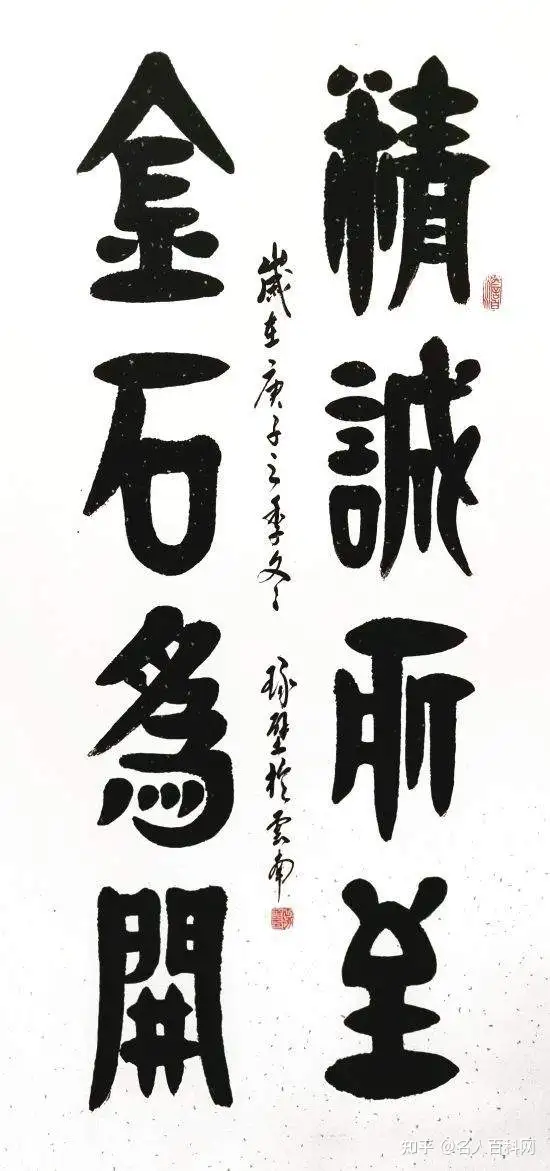 精誠所至
金石為開
歲在庚子之季冬 琢璧於雲南
知乎 @名人百科网